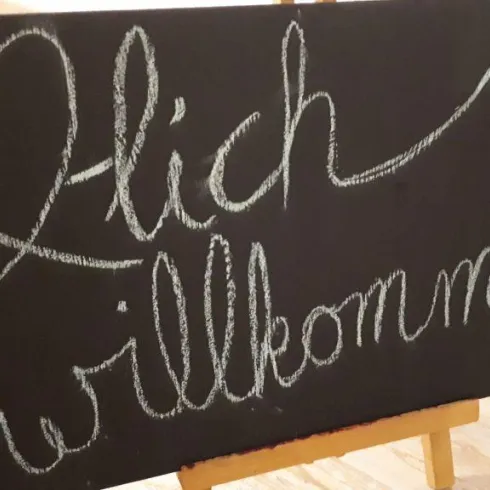 2-lich
willkomm